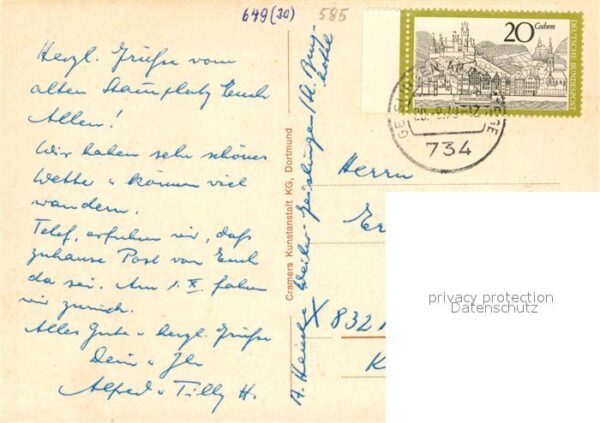 649 (30) 585
Herzl. Grüße vom
alten Stammplatz Euch
Allen!
Wir haben sehr schönes
Wetter u können viel
wandern.
Telef. erfuhren wir, daß
zuhause Post von Euch
da sei. Am 1. X. fahren
wir zurück.
Alles Gute u herzl. Grüße
Dein u Ihr
Alfred u Tilly H.
Cramers Kunstanstalt KG, Dortmund
A. Weiler-Geislingen
20 Cochem
DEUTSCHE BUNDESPOST
734
Herrn
X 832
K
privacy protection
Datenschutz